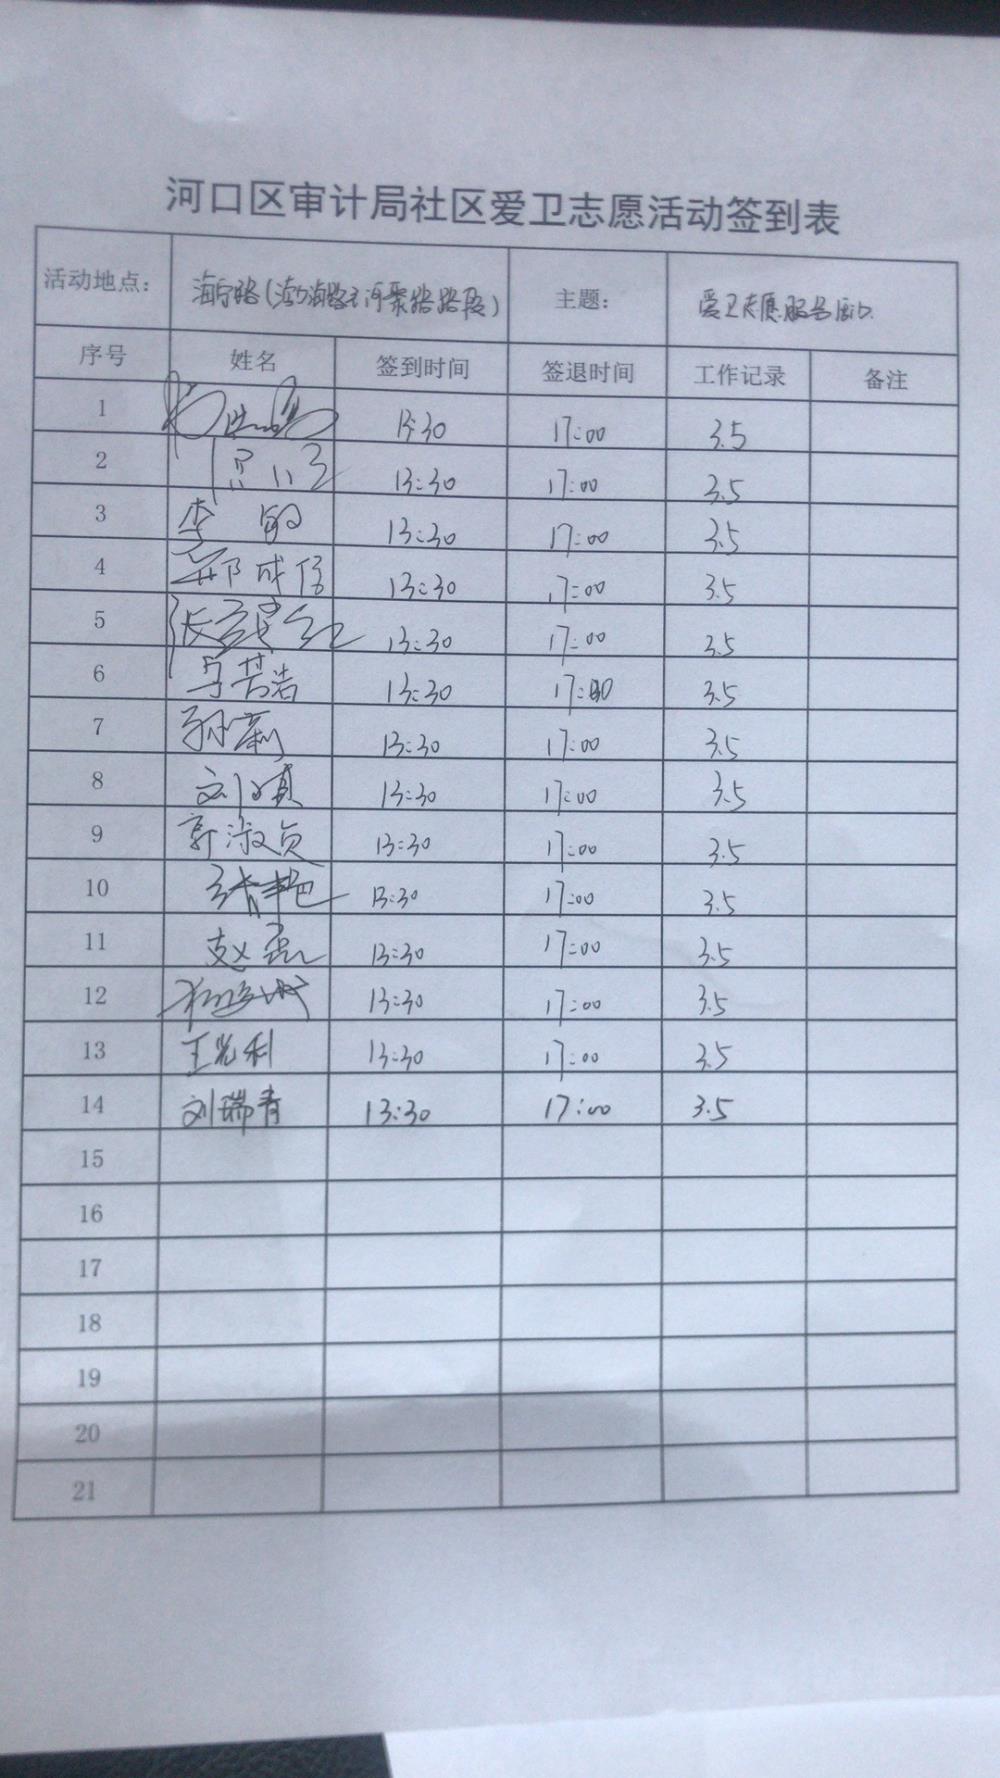 河口区审计局社区爱卫志愿活动签到表
活动地点： 海宁路（渤海路至河聚路路段） 主题： 爱卫志愿服务活动
序号 姓名 签到时间 签退时间 工作记录 备注
1 13:30 17:00 3.5
2 13:30 17:00 3.5
3 李敏 13:30 17:00 3.5
4 13:30 17:00 3.5
5 13:30 17:00 3.5
6 13:30 17:00 3.5
7 孙莉 13:30 17:00 3.5
8 13:30 17:00 3.5
9 郭淑贞 13:30 17:00 3.5
10 13:30 17:00 3.5
11 赵磊 13:30 17:00 3.5
12 13:30 17:00 3.5
13 王光利 13:30 17:00 3.5
14 刘瑞青 13:30 17:00 3.5
15
16
17
18
19
20
21